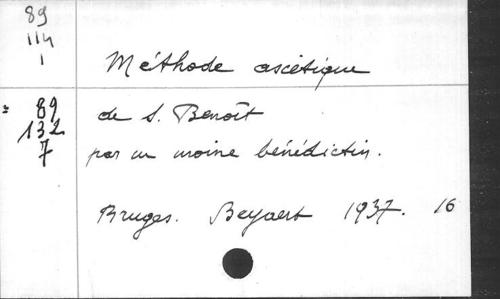 89
114
1
Méthode ascétique
= 89
132
7
de S. Benoît
par un moine bénédictin.
Bruges. Beyaert 1937. 16